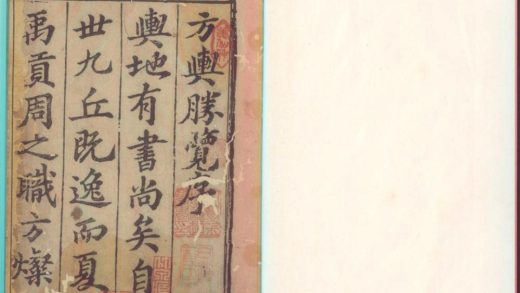 方輿勝覽序
輿地有書尚矣自
丗九丘既逸而夏
禹貢周之職方燦